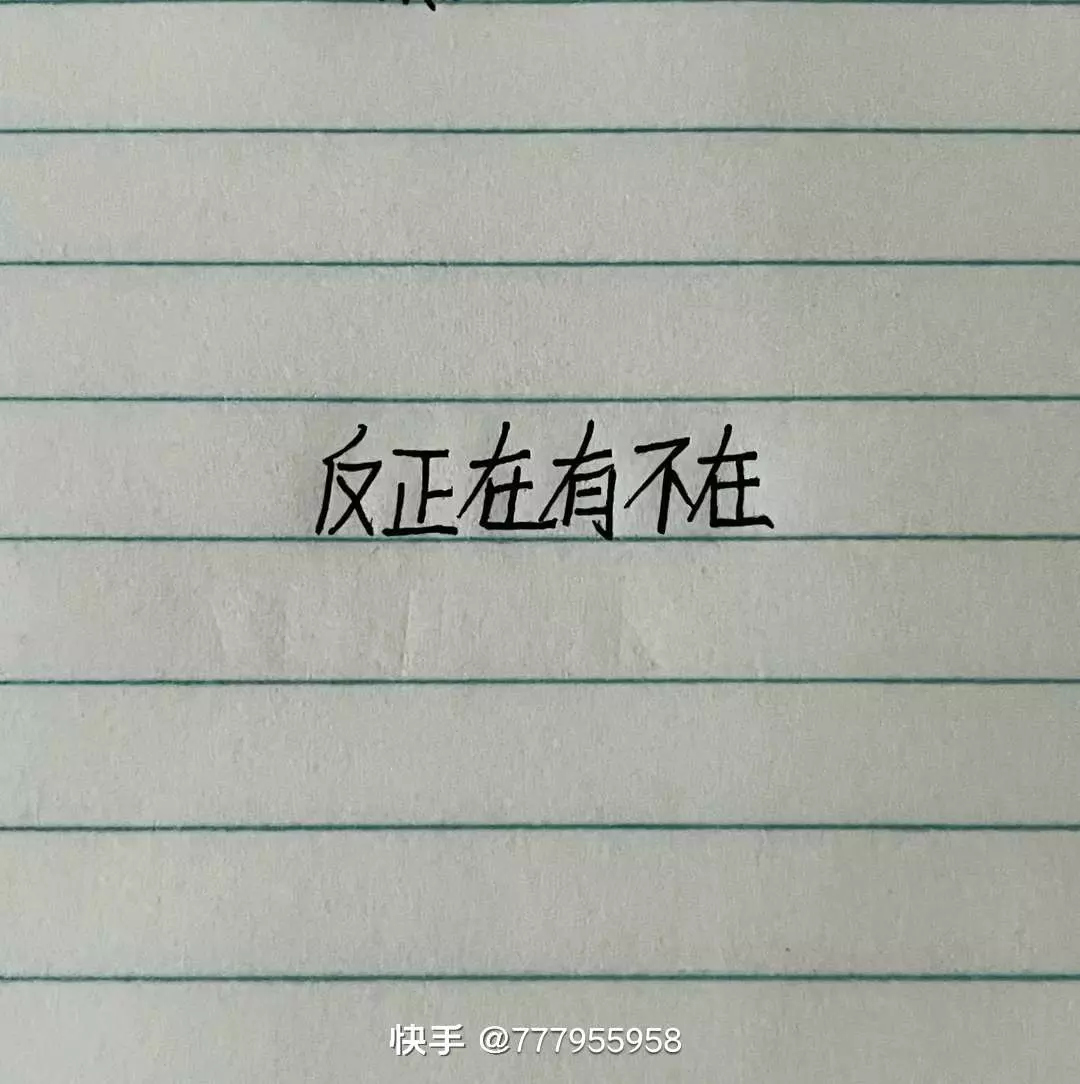 反正在有不在
快手 @777955958